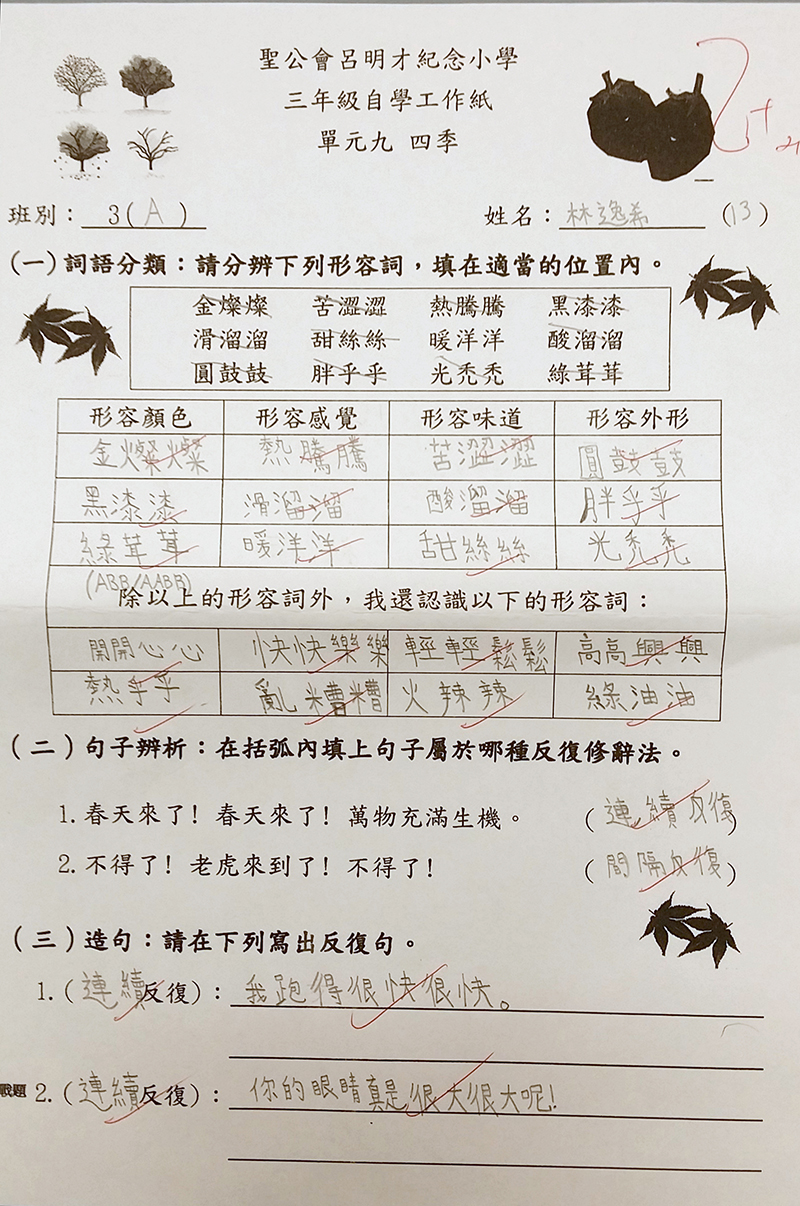 聖公會呂明才紀念小學
三年級自學工作紙
單元九 四季
班別： 3( A ) 姓名：林逸希 (13)
(一)詞語分類：請分辨下列形容詞，填在適當的位置內。
金燦燦 苦澀澀 熱騰騰 黑漆漆
滑溜溜 甜絲絲 暖洋洋 酸溜溜
圓鼓鼓 胖乎乎 光禿禿 綠茸茸
形容顏色 形容感覺 形容味道 形容外形
金燦燦 熱騰騰 苦澀澀 圓鼓鼓
黑漆漆 滑溜溜 酸溜溜 胖乎乎
綠茸茸 暖洋洋 甜絲絲 光禿禿
(ABB/AABB)
除以上的形容詞外，我還認識以下的形容詞：
開開心心 快快樂樂 輕輕鬆鬆 高高興興
熱乎乎 亂糟糟 火辣辣 綠油油
(二)句子辨析：在括弧內填上句子屬於哪種反復修辭法。
1.春天來了！春天來了！萬物充滿生機。 (連續反復)
2.不得了！老虎來到了！不得了！ (間隔反復)
(三)造句：請在下列寫出反復句。
1.(連續反復)：我跑得很快很快。
戰題 2.(連續反復)：你的眼睛真是很大很大呢！